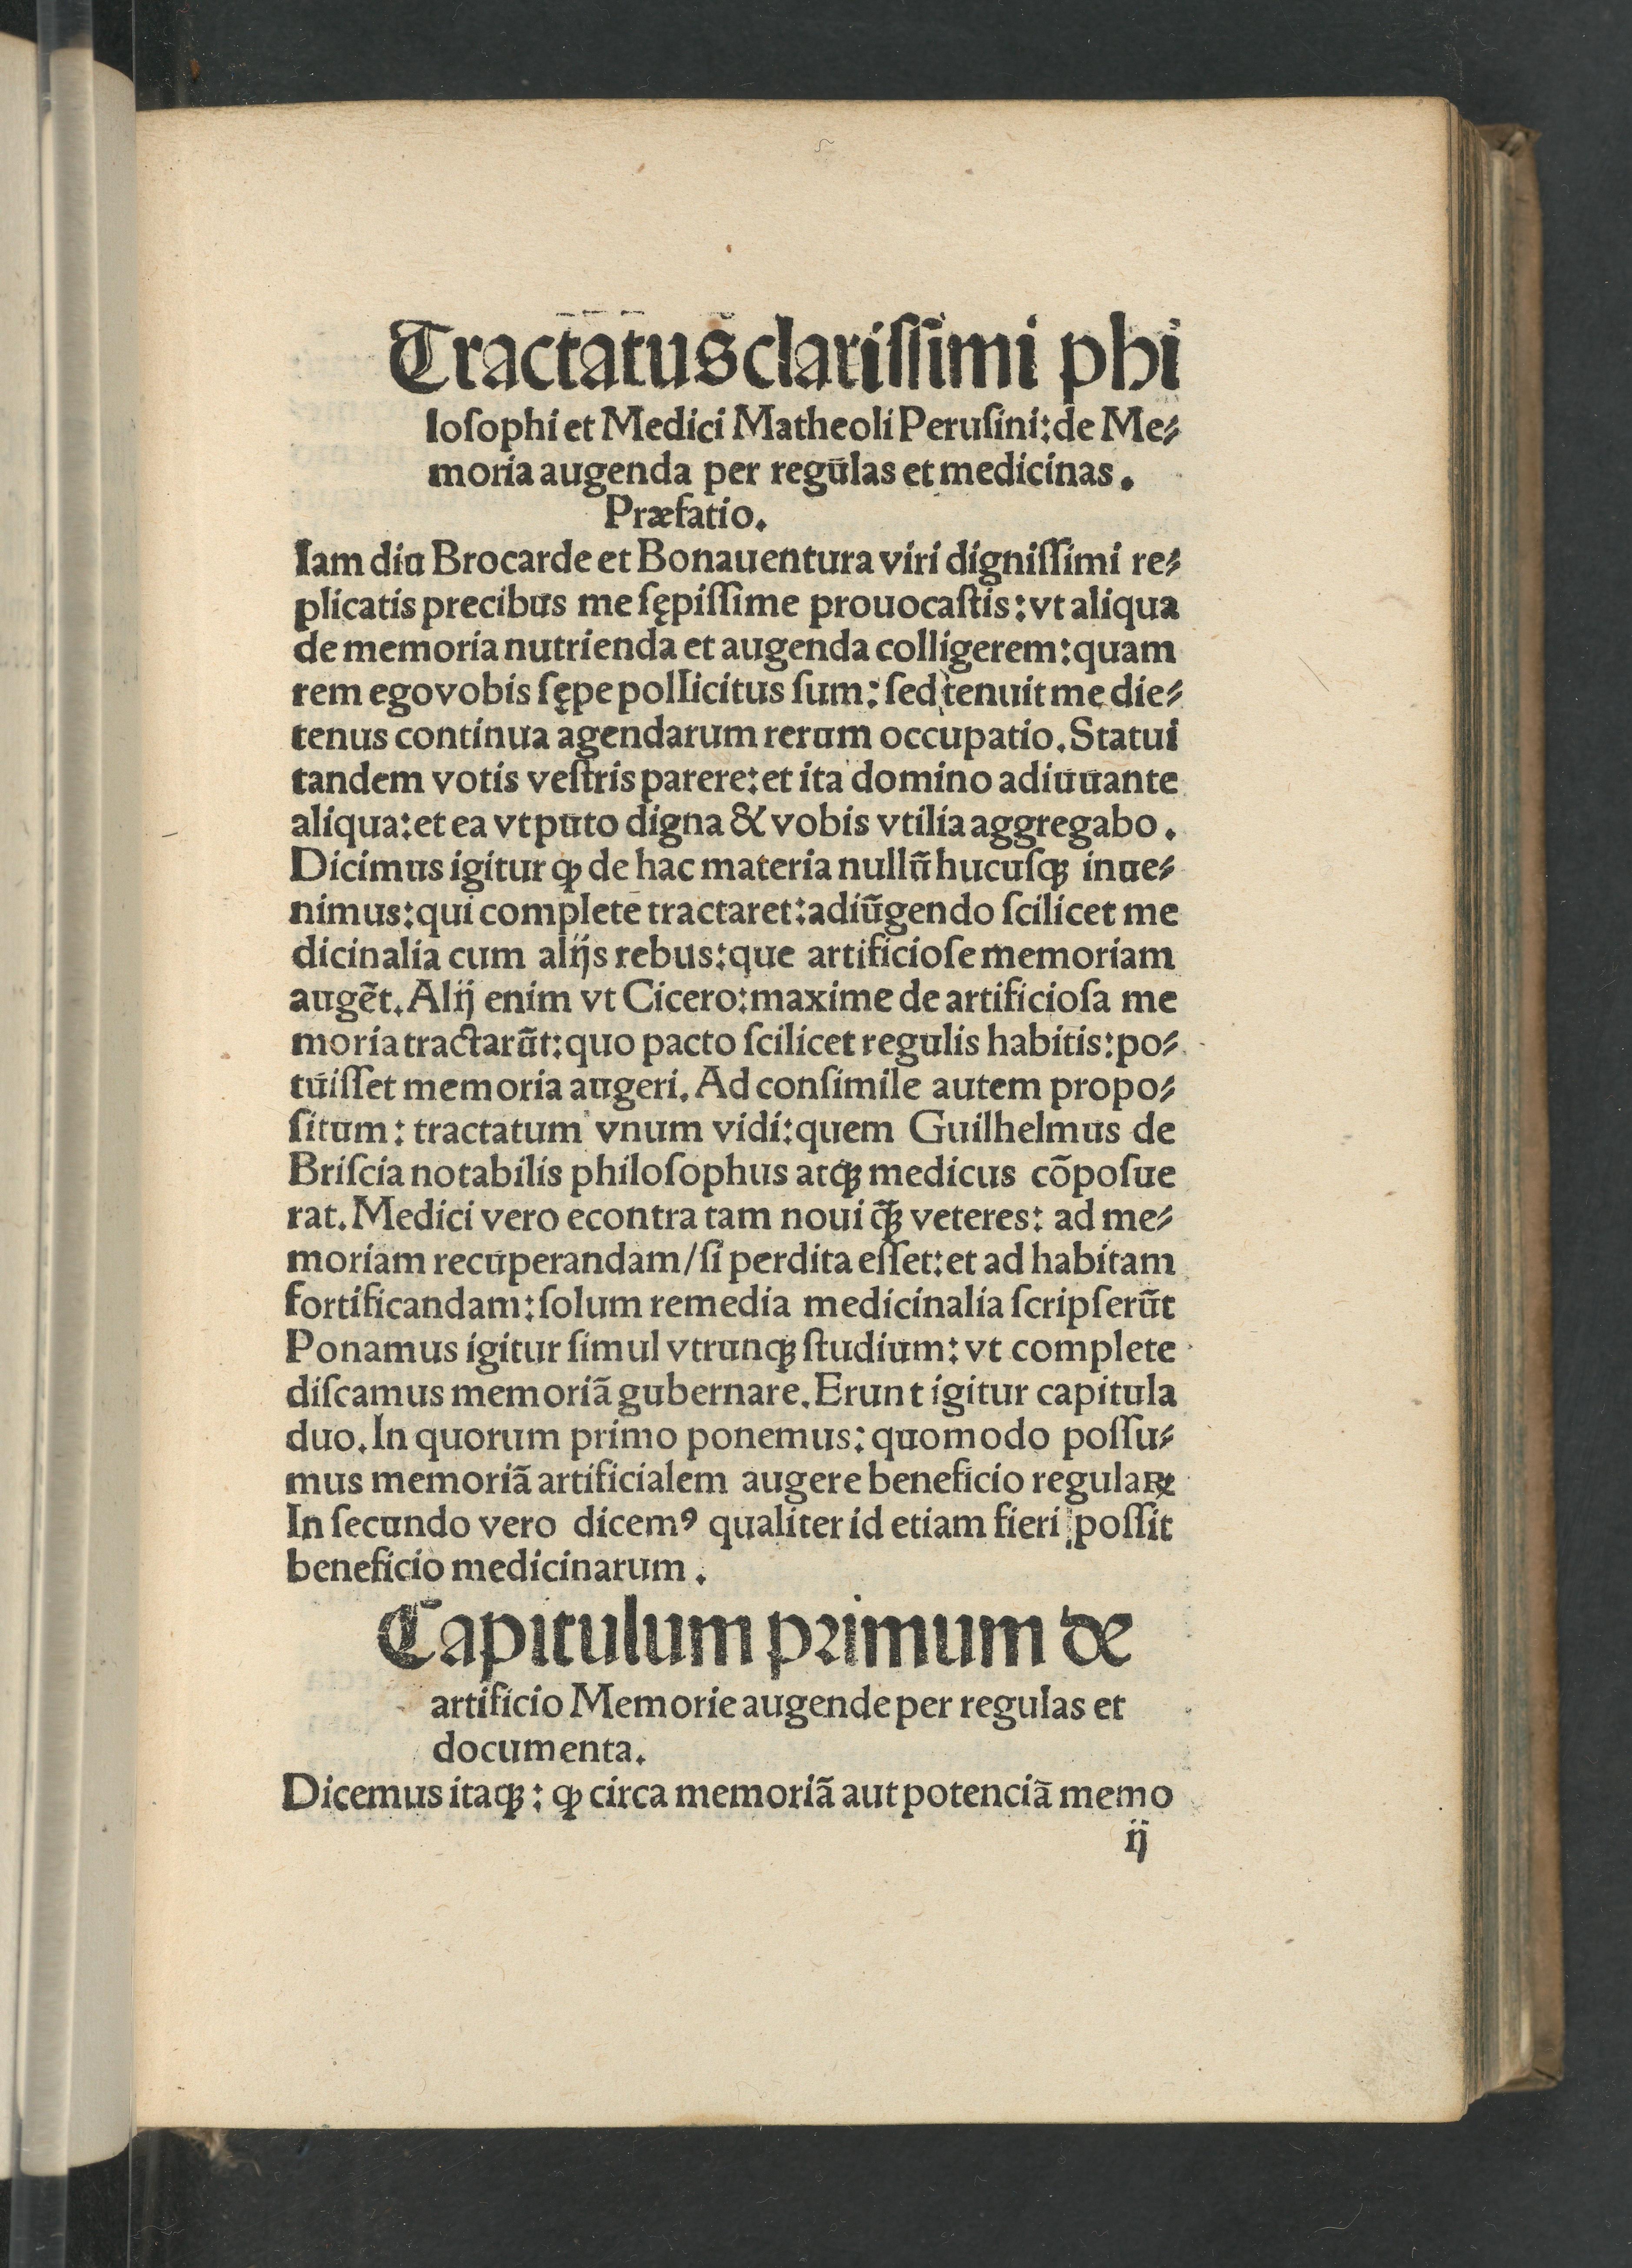 Tractatus clarissimi phi
losophi et Medici Matheoli Perusini: de Me⸗
moria augenda per regulas et medicinas.
Præfatio.
Iam diu Brocarde et Bonauentura viri dignissimi re⸗
plicatis precibus me sępissime prouocastis: vt aliqua
de memoria nutrienda et augenda colligerem: quam
rem ego vobis sępe pollicitus sum: sed tenuit me die⸗
tenus continua agendarum rerum occupatio. Statui
tandem votis vestris parere: et ita domino adiuuante
aliqua: et ea vt puto digna & vobis vtilia aggregabo.
Dicimus igitur ꝙ de hac materia nullū hucusqꝫ inue⸗
nimus: qui complete tractaret: adiūgendo scilicet me
dicinalia cum alijs rebus: que artificiose memoriam
augēt. Alij enim vt Cicero: maxime de artificiosa me
moria tractarūt: quo pacto scilicet regulis habitis: po⸗
tuisset memoria augeri. Ad consimile autem propo⸗
situm: tractatum vnum vidi: quem Guilhelmus de
Briscia notabilis philosophus atqꝫ medicus cōposue
rat. Medici vero econtra tam noui q̄ꝫ veteres: ad me⸗
moriam recuperandam/si perdita esset: et ad habitam
fortificandam: solum remedia medicinalia scripserūt
Ponamus igitur simul vtrunqꝫ studium: vt complete
discamus memoriā gubernare. Erunt igitur capitula
duo. In quorum primo ponemus: quomodo possu⸗
mus memoriā artificialem augere beneficio regulaꝝ
In secundo vero dicemꝰ qualiter id etiam fieri possit
beneficio medicinarum.
Capitulum primum de
artificio Memorie augende per regulas et
documenta.
Dicemus itaqꝫ: ꝙ circa memoriā aut potenciā memo
ij